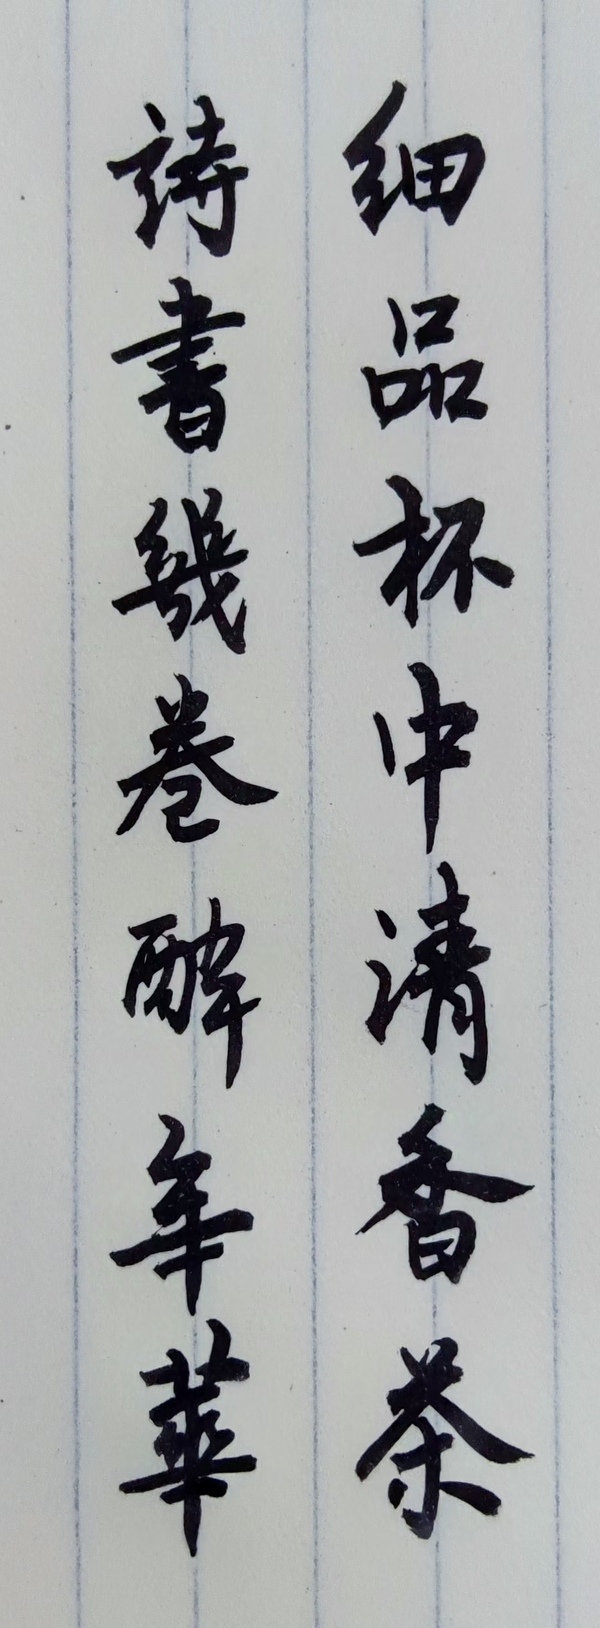 细品杯中清香茶
詩書幾卷醉年華